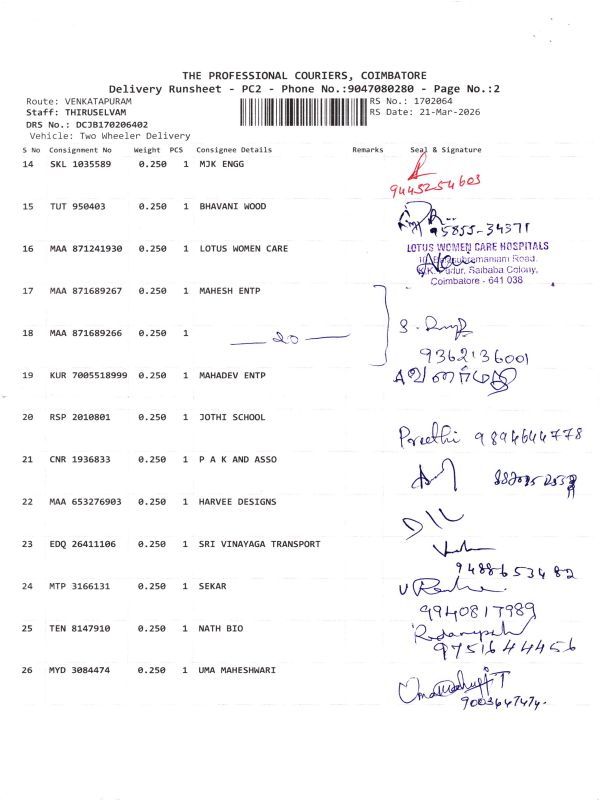 THE PROFESSIONAL COURIERS, COIMBATORE
Delivery Runsheet - PC2 - Phone No.:9047080280 - Page No.:2
Route: VENKATAPURAM
RS No.: 1702064
Staff: THIRUSELVAM
RS Date: 21-Mar-2026
DRS No.: DCJB170206402
Vehicle: Two Wheeler Delivery
S No Consignment No Weight PCS Consignee Details Remarks Seal & Signature
14 SKL 1035589 0.250 1 MJK ENGG
9445254603
15 TUT 950403 0.250 1 BHAVANI WOOD
95855-34371
16 MAA 871241930 0.250 1 LOTUS WOMEN CARE LOTUS WOMEN CARE HOSPITALS
Road,
Saibaba Colony,
Coimbatore - 641 038
17 MAA 871689267 0.250 1 MAHESH ENTP
18 MAA 871689266 0.250 1
9362136001
19 KUR 7005518999 0.250 1 MAHADEV ENTP
20 RSP 2010801 0.250 1 JOTHI SCHOOL
Preethi 9894644778
21 CNR 1936833 0.250 1 P A K AND ASSO
22 MAA 653276903 0.250 1 HARVEE DESIGNS
23 EDQ 26411106 0.250 1 SRI VINAYAGA TRANSPORT
9488653482
24 MTP 3166131 0.250 1 SEKAR
9940817989
25 TEN 8147910 0.250 1 NATH BIO
9751644456
26 MYD 3084474 0.250 1 UMA MAHESHWARI
9003647474.